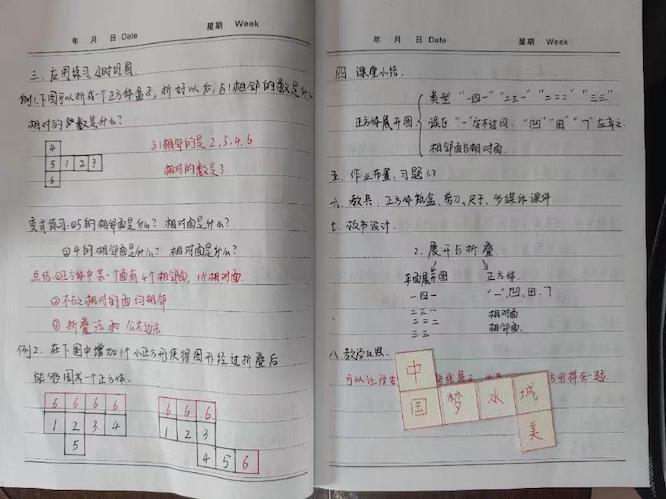 年 月 日 Date 星期 Week
三、应用练习 及时巩固
例1.下图可以折成一个正方体盒子,折好以后,与1相邻的数是什么
相对的数是什么?
4
5 1 2 3
6
与1相邻的是2,5,4,6
相对的数是3
变式练习:①5的相邻面是什么?相对面是什么?
②4的相邻面是什么?相对面是什么?
点拨:①正方体中某一个面有4个相邻面,1个相对面.
②不与之相对的面均相邻
③折叠法和公共边法
例2.在下图中增加1个小正方形使得图形经过折叠后
能够围成一个正方体.
6 6 6 6
1 2 3 4
5
6 6 6
1 2 3
4 5 6
年 月 日 Date 星期 Week
四 课堂小结.
类型 "一四一" "二三一" "二二二" "三三"
正方体展开图
误区 "一" "凹" "田" "7" 应弃之.
相邻面与相对面.
五、作业布置:习题1.3
六、教具:正方体纸盒、剪刀、尺子、多媒体课件
七、板书设计.
2.展开与折叠
平面展开图 正方体.
一四一 "一",凹,田,7
二三一 相对面
二二二 相邻面.
三三
八、教学反思.
可以让没有
在一起.
中
国 梦 水 城
美